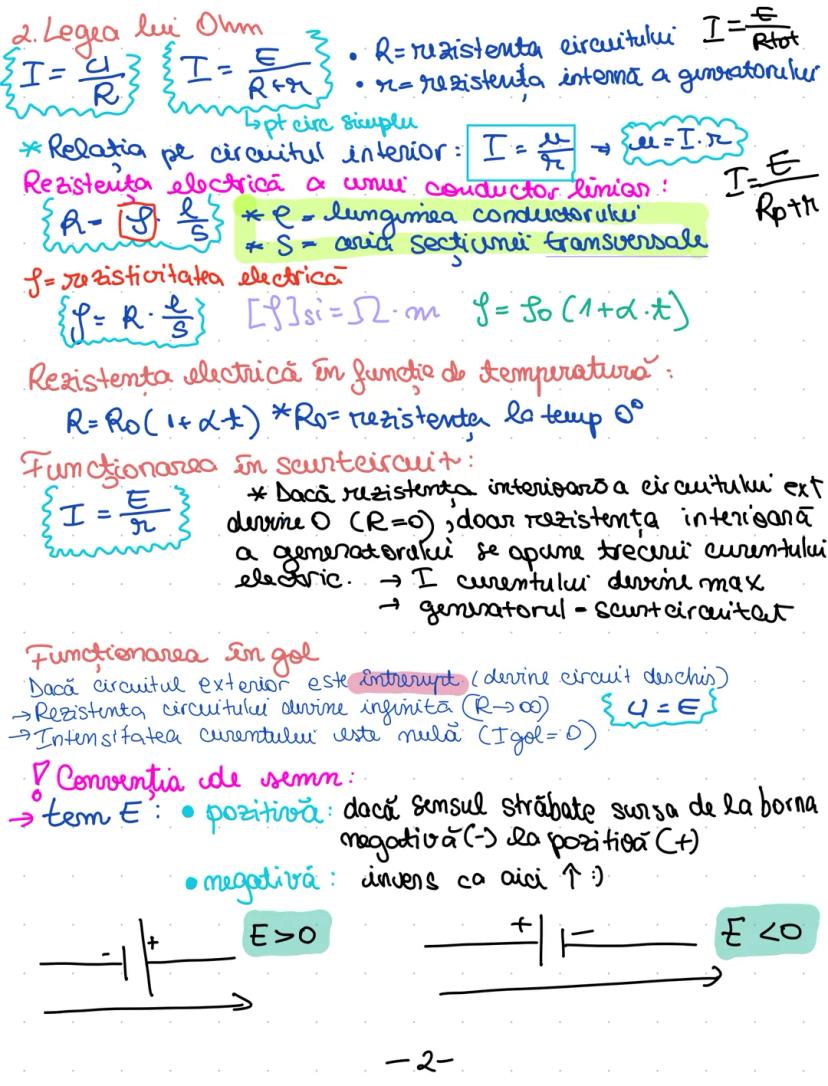 2. Legea lui Ohm
I = U/R
I = E/(R+r)
• R = rezistenta circuitului
I = E/Rtot
• r = rezistența internă a generatorului
↳ pt circ simplu
* Relația pe circuitul interior: I = u/r → u = I · r
Rezistența electrică a unui conductor liniar:
I = E/(Rp+r)
R = ρ · l/S
* l = lungimea conductorului
* S = aria secțiunii transversale
ρ = rezistivitatea electrică
ρ = R · l/S [ρ]si = Ω · m ρ = ρ0 (1+α·t)
Rezistența electrică în funcție de temperatură:
R = R0 (1+αt) * R0 = rezistența la temp 0°
Funcționarea în scurtcircuit:
I = E/r
* Dacă rezistența interioară a circuitului ext
devine 0 (R=0), doar rezistența interioară
a generatorului se opune trecerii curentului
electric. → I curentului devine max
→ generatorul - scurtcircuitat
Funcționarea în gol
Dacă circuitul exterior este întrerupt (devine circuit deschis)
→ Rezistenta circuitului devine infinită (R→∞)
U = E
→ Intensitatea curentului este nulă (Igol = 0)
! Convenția de semn:
→ tem E: • pozitivă: dacă sensul străbate sursa de la borna
negativă (-) la pozitivă (+)
• negativă: invers ca aici ↑ :)
- + E>0
+ - E<0
-2-